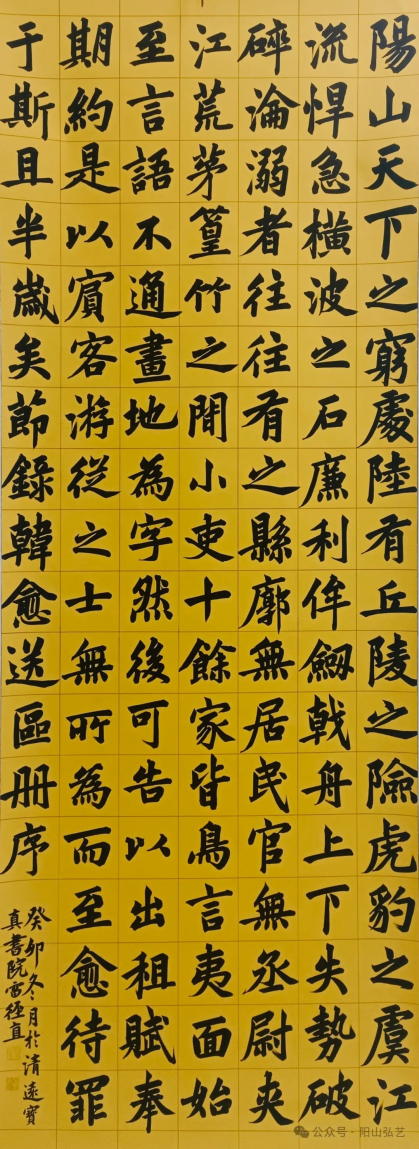 陽山天下之窮處陸有丘陵之險虎豹之虞江
流悍急橫波之石廉利侔劔戟舟上下失勢破
碎淪溺者往往有之縣廓無居民官無丞尉夾
江荒茅篁竹之間小吏十餘家皆鳥言夷面始
至言語不通畫地為字然後可告以出租賦奉
期約是以賓客游從之士無所為而至愈待罪
于斯且半歲矣節錄韓愈送區冊序
癸卯冬月於清遠寶
真書院雷徑直
公众号·阳山弘艺